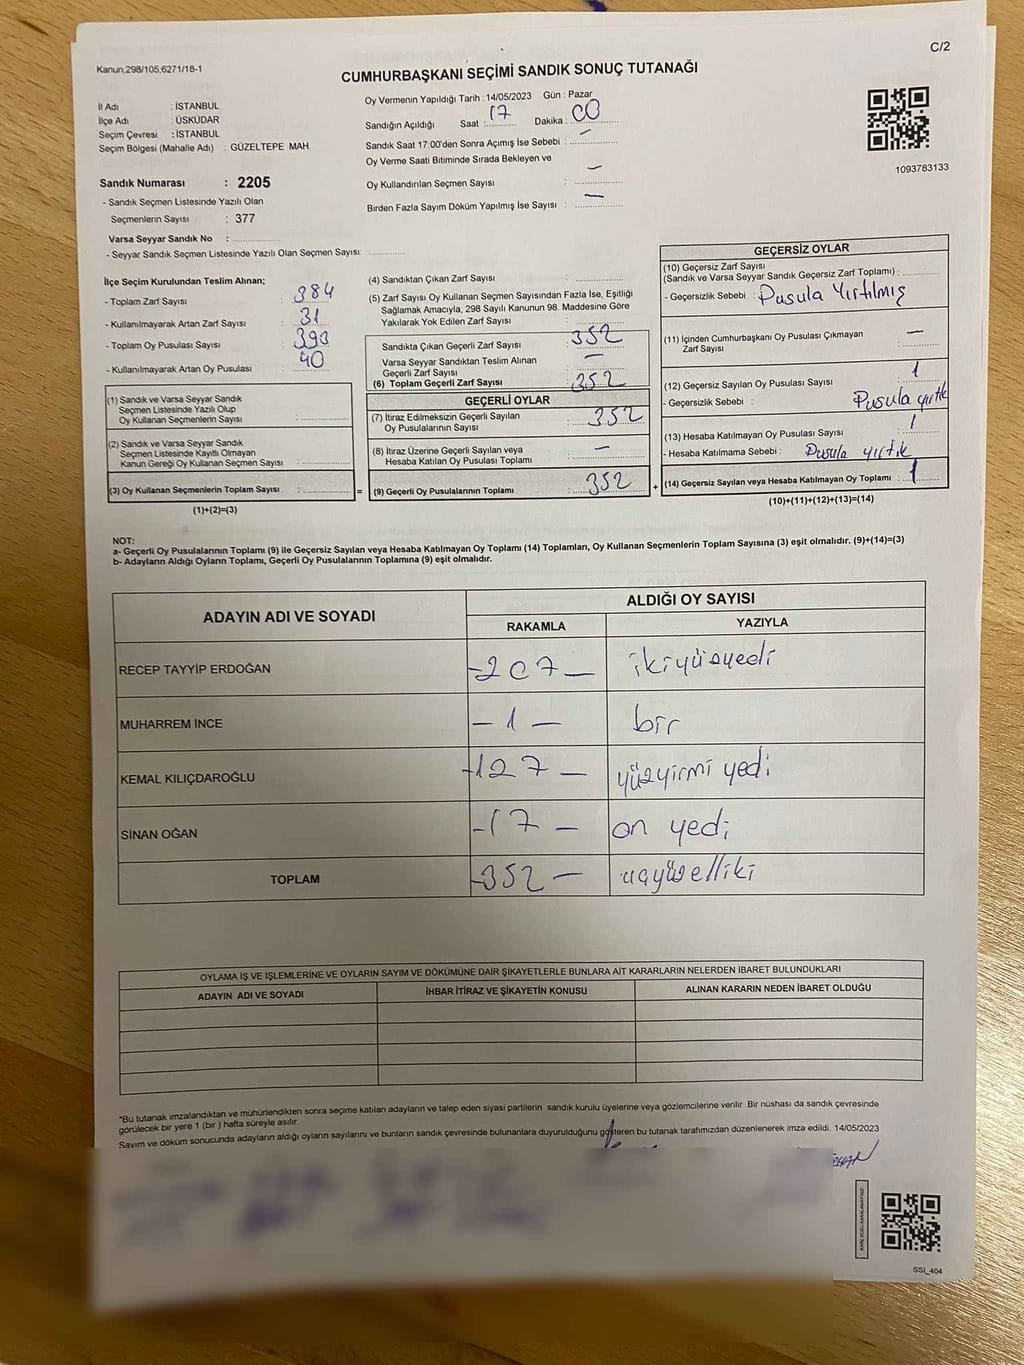 C/2
Kanun;298/105;6271/18-1
CUMHURBAŞKANI SEÇİMİ SANDIK SONUÇ TUTANAĞI
İl Adı : İSTANBUL
İlçe Adı : ÜSKÜDAR
Seçim Çevresi : İSTANBUL
Seçim Bölgesi (Mahalle Adı) : GÜZELTEPE MAH.
Oy Vermenin Yapıldığı Tarih : 14/05/2023 Gün : Pazar
Sandığın Açıldığı Saat : 17 Dakika : 00
Sandık Saat 17:00'den Sonra Açımış İse Sebebi : —
Oy Verme Saati Bitiminde Sırada Bekleyen ve
Oy Kullandırılan Seçmen Sayısı : —
Birden Fazla Sayım Döküm Yapılmış İse Sayısı : —
1093783133
Sandık Numarası : 2205
- Sandık Seçmen Listesinde Yazılı Olan
Seçmenlerin Sayısı : 377
Varsa Seyyar Sandık No :
- Seyyar Sandık Seçmen Listesinde Yazılı Olan Seçmen Sayısı:
İlçe Seçim Kurulundan Teslim Alınan;
- Toplam Zarf Sayısı : 384
- Kullanılmayarak Artan Zarf Sayısı : 31
- Toplam Oy Pusulası Sayısı : 393
- Kullanılmayarak Artan Oy Pusulası : 40
(1) Sandık ve Varsa Seyyar Sandık
Seçmen Listesinde Yazılı Olup
Oy Kullanan Seçmenlerin Sayısı :
(2) Sandık ve Varsa Seyyar Sandık
Seçmen Listesinde Kayıtlı Olmayan
Kanun Gereği Oy Kullanan Seçmen Sayısı :
(3) Oy Kullanan Seçmenlerin Toplam Sayısı : =
(1)+(2)=(3)
(4) Sandıktan Çıkan Zarf Sayısı :
(5) Zarf Sayısı Oy Kullanan Seçmen Sayısından Fazla İse, Eşitliği
Sağlamak Amacıyla, 298 Sayılı Kanunun 98. Maddesine Göre
Yakılarak Yok Edilen Zarf Sayısı :
Sandıkta Çıkan Geçerli Zarf Sayısı : 352
Varsa Seyyar Sandıktan Teslim Alınan
Geçerli Zarf Sayısı : —
(6) Toplam Geçerli Zarf Sayısı : 352
GEÇERLİ OYLAR
(7) İtiraz Edilmeksizin Geçerli Sayılan
Oy Pusulalarının Sayısı : 352
(8) İtiraz Üzerine Geçerli Sayılan veya
Hesaba Katılan Oy Pusulası Toplamı : —
(9) Geçerli Oy Pusulalarının Toplamı : 352 +
GEÇERSİZ OYLAR
(10) Geçersiz Zarf Sayısı
(Sandık ve Varsa Seyyar Sandık Geçersiz Zarf Toplamı) :
- Geçersizlik Sebebi : Pusula Yırtılmış
(11) İçinden Cumhurbaşkanı Oy Pusulası Çıkmayan
Zarf Sayısı —
(12) Geçersiz Sayılan Oy Pusulası Sayısı : 1
- Geçersizlik Sebebi : Pusula yırtık
(13) Hesaba Katılmayan Oy Pusulası Sayısı : 1
- Hesaba Katılmama Sebebi : Pusula yırtık
(14) Geçersiz Sayılan veya Hesaba Katılmayan Oy Toplamı : 1
(10)+(11)+(12)+(13)=(14)
NOT:
a- Geçerli Oy Pusulalarının Toplamı (9) ile Geçersiz Sayılan veya Hesaba Katılmayan Oy Toplamı (14) Toplamları, Oy Kullanan Seçmenlerin Toplam Sayısına (3) eşit olmalıdır. (9)+(14)=(3)
b- Adayların Aldığı Oyların Toplamı, Geçerli Oy Pusulalarının Toplamına (9) eşit olmalıdır.
ADAYIN ADI VE SOYADI ALDIĞI OY SAYISI
RAKAMLA YAZIYLA
RECEP TAYYİP ERDOĞAN -207- ikiyüzyedi
MUHARREM İNCE -1- bir
KEMAL KILIÇDAROĞLU -127- yüzyirmi yedi
SİNAN OĞAN -17- on yedi
TOPLAM -352- üçyüzelliki
OYLAMA İŞ VE İŞLEMLERİNE VE OYLARIN SAYIM VE DÖKÜMÜNE DAİR ŞİKAYETLERLE BUNLARA AİT KARARLARIN NELERDEN İBARET BULUNDUKLARI
ADAYIN ADI VE SOYADI İHBAR İTİRAZ VE ŞİKAYETİN KONUSU ALINAN KARARIN NEDEN İBARET OLDUĞU
*Bu tutanak imzalandıktan ve mühürlendikten sonra seçime katılan adayların ve talep eden siyasi partilerin sandık kurulu üyelerine veya gözlemcilerine verilir. Bir nüshası da sandık çevresinde
görülecek bir yere 1 (bir) hafta süreyle asılır.
Sayım ve döküm sonucunda adayların aldığı oyların sayılarını ve bunların sandık çevresinde bulunanlara duyurulduğunu gösteren bu tutanak tarafımızdan düzenlenerek imza edildi. 14/05/2023
SSI_404